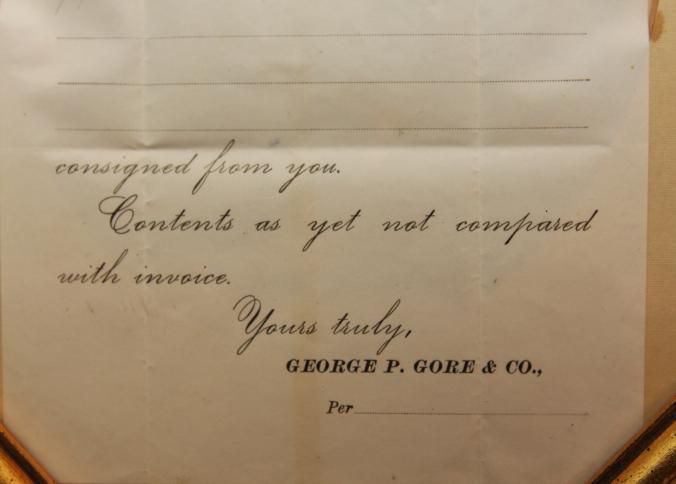 consigned from you.
Contents as yet not compared
with invoice.
Yours truly,
GEORGE P. GORE & CO.,
Per